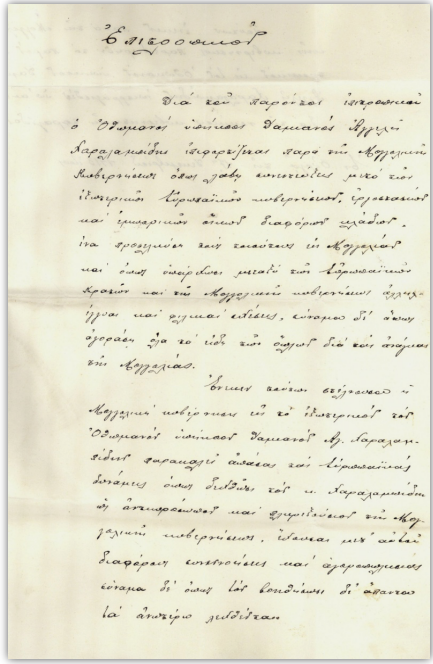 Ἐπιτροπικόν
Διά τοῦ παρόντος ἐπιτροπικοῦ
ὁ Ὀθωμανός ὑπήκοος Δαμιανός Ἀγγελῆ
Χαραλαμπίδης ἐπιφορτίζεται παρά τῆς Μογγολικῆς
Κυβερνήσεως ὅπως λάβῃ συνεντεύξεις μετά τῶν
ἐξωτερικῶν Εὐρωπαϊκῶν κυβερνήσεων, ἐργοστασίων
καί ἐμπορικῶν οἴκων διαφόρων κλάδων,
ἵνα προσελκύσῃ τούς τοιούτους εἰς Μογγολίαν
καί ὅπως ὑπάρχωσι μεταξύ τῶν Εὐρωπαϊκῶν
Κρατῶν καί τῆς Μογγολικῆς κυβερνήσεως ἀλλη-
λέγγυαι καί φιλικαί σχέσεις, συνάμα δέ ὅπως
ἀγοράσῃ ὅλα τά εἴδη τῶν ὅπλων διά τάς ἀνάγκας
τῆς Μογγολίας.
Ἕνεκεν τούτου στέλνουσα ἡ
Μογγολική κυβέρνησις εἰς τό ἐξωτερικόν τόν
Ὀθωμανόν ὑπήκοον Δαμιανόν Ἀγ. Χαραλαμ-
πίδην παρακαλεῖ ἁπάσας τάς Εὐρωπαϊκάς
δυνάμεις ὅπως δεχθῶσι τόν κ. Χαραλαμπίδην
ὡς ἀντιπρόσωπον καί πληρεξούσιον τῆς Μογ-
γολικῆς κυβερνήσεως, μετ' αὐτοῦ
διαφόρους συνεννοήσεις καί ἀγοραπωλησίας
συνάμα δέ ὅπως τόν βοηθήσωσι δι' ἅπαντα
τά ἀνωτέρω λεχθέντα.